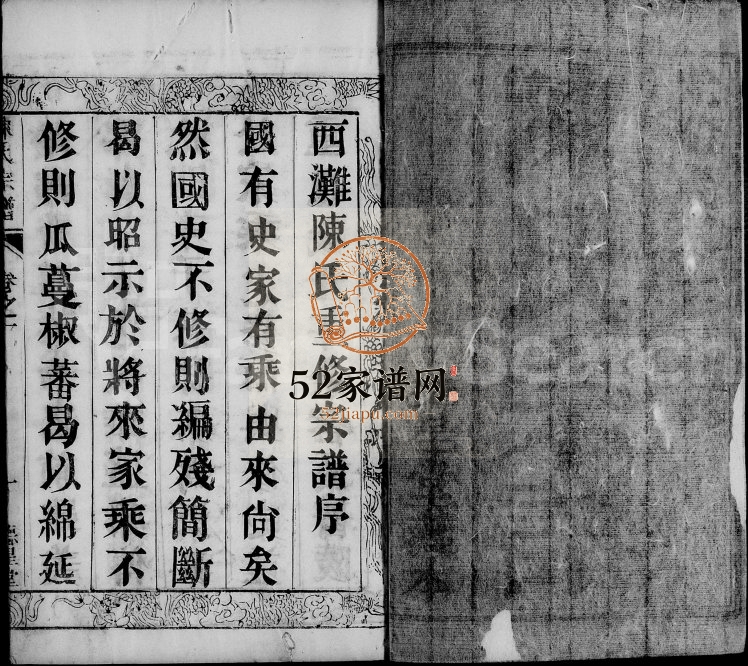 西灘陳氏重修宗譜序
國有史家有乘由來尙矣
然國史不修則編殘簡斷
曷以昭示於將來家乘不
修則瓜蔓椒蕃曷以綿延
陳氏宗譜
卷之一
一
52家谱网
52jiapu.com